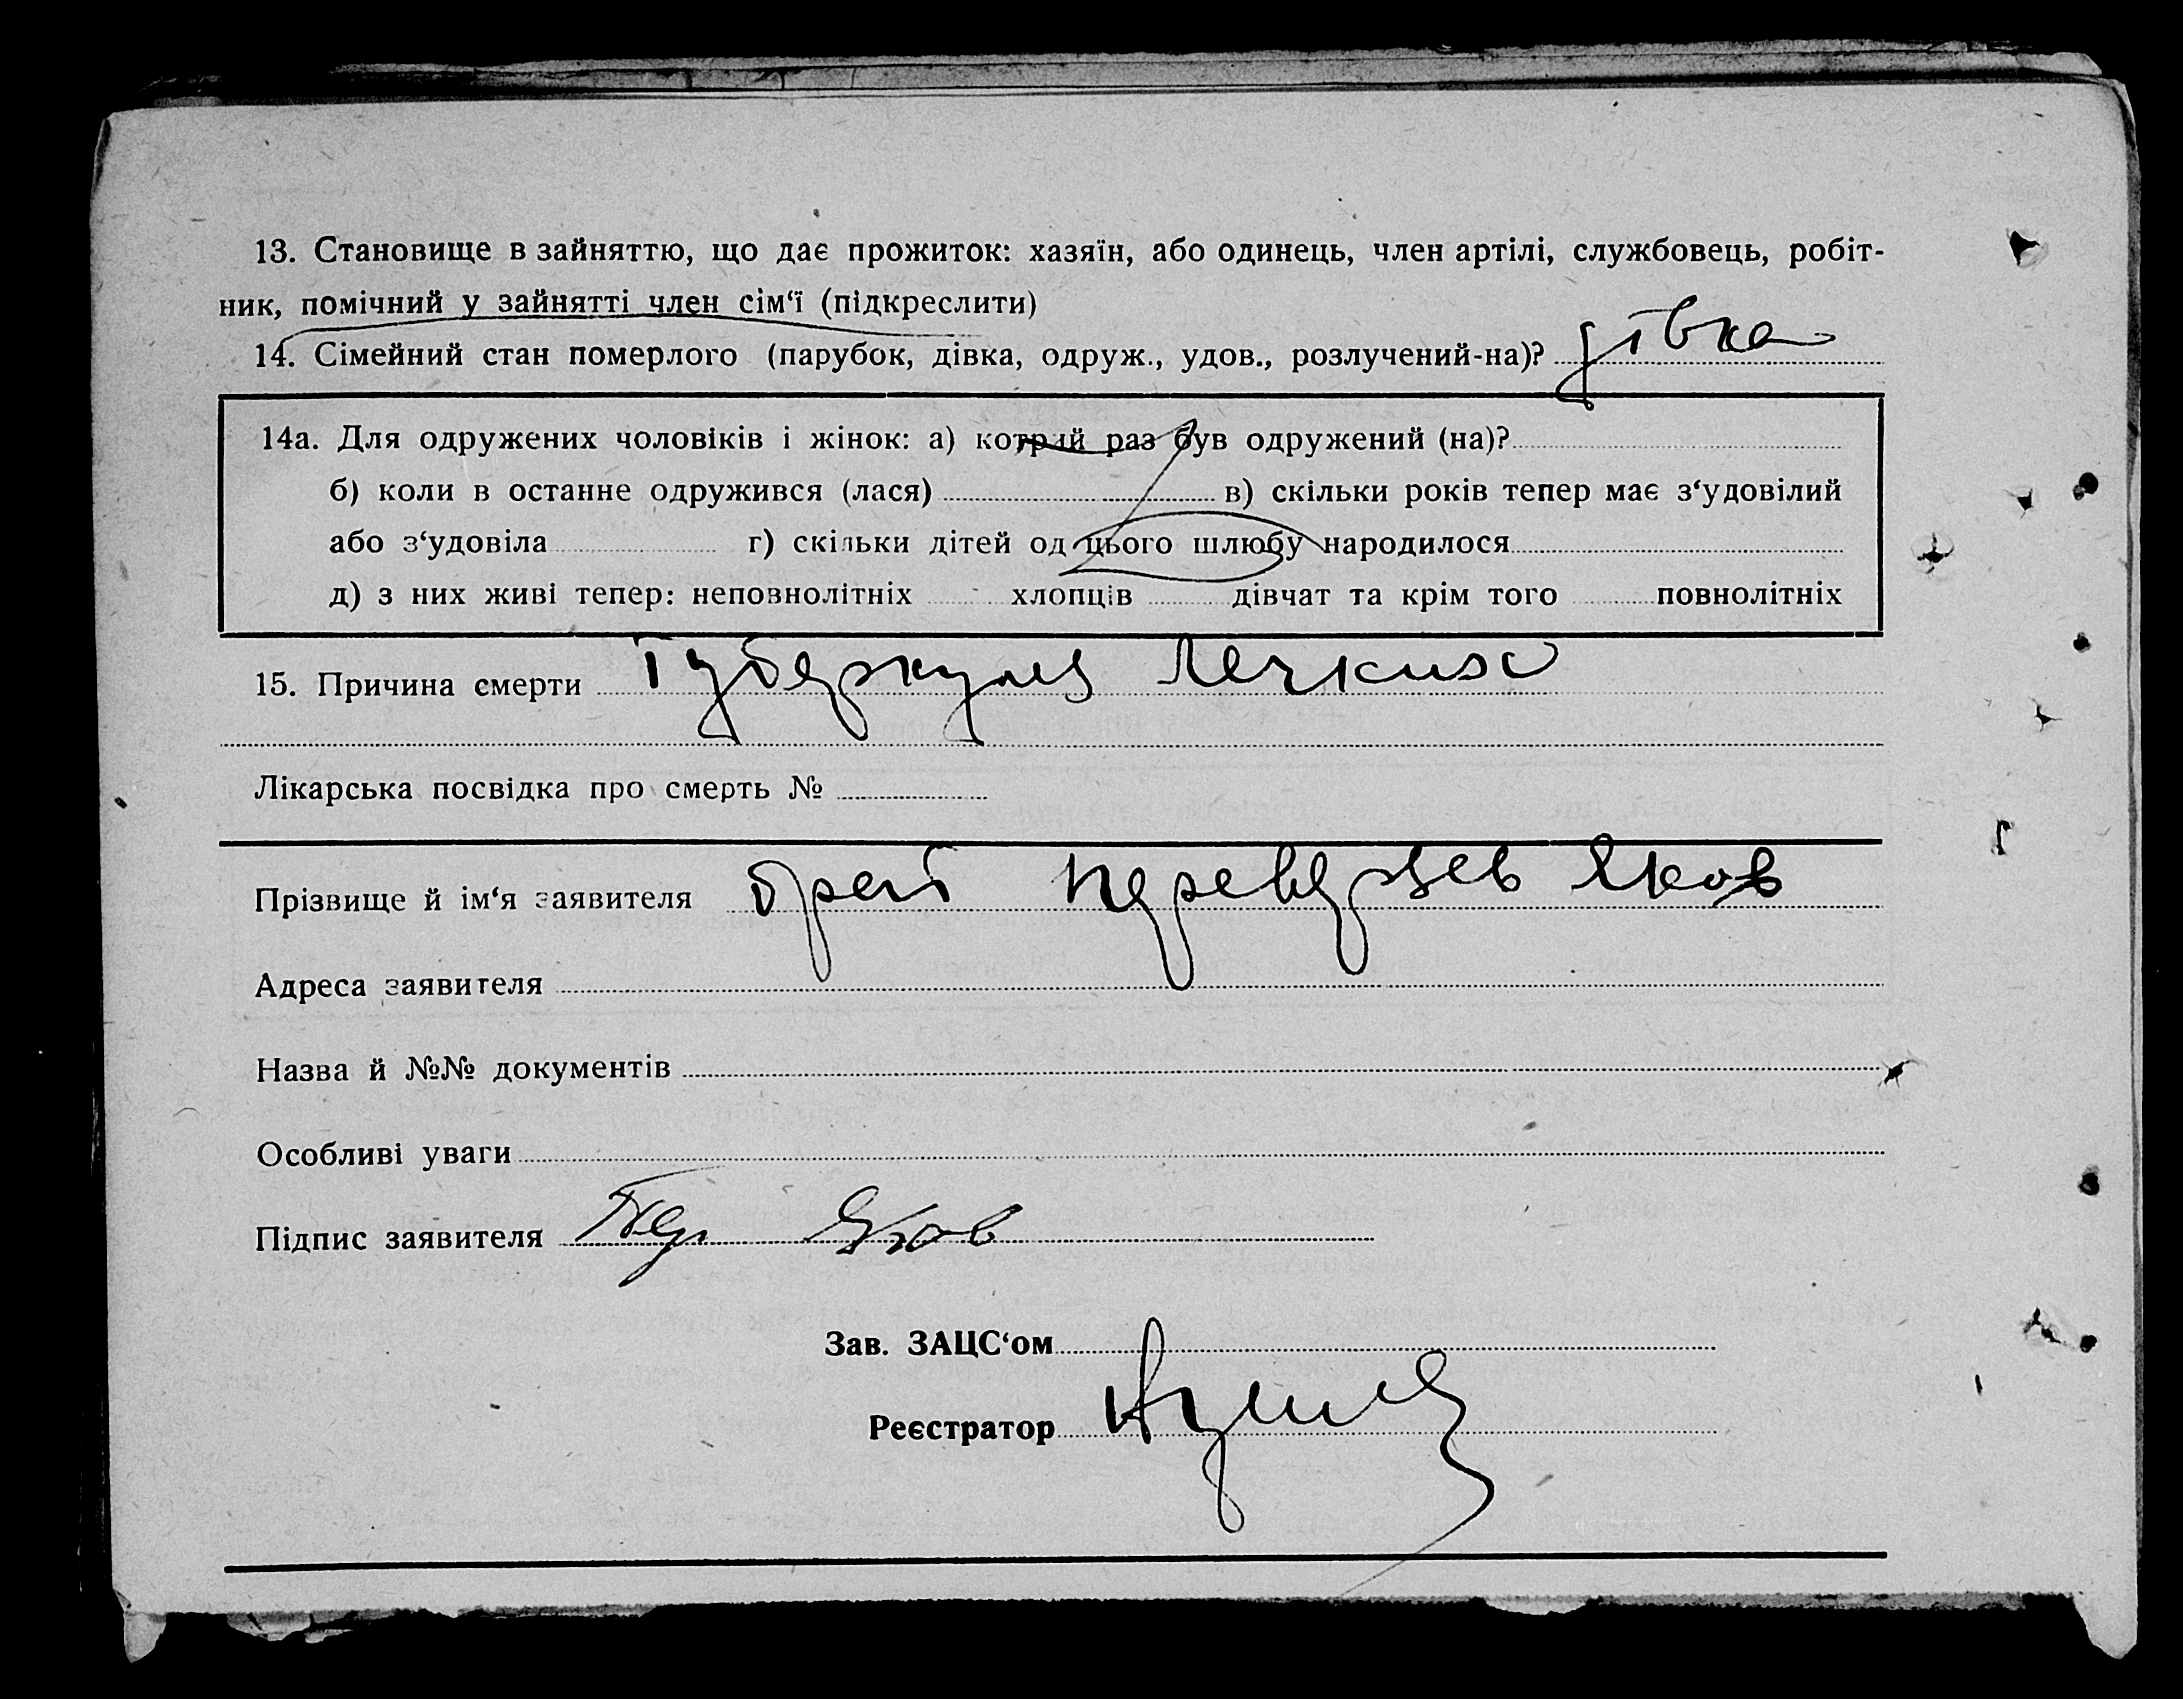 13. Становище в зайняттю, що дає прожиток: хазяїн, або одинець, член артілі, службовець, робіт-
ник, помічний у зайнятті член сім‘ї (підкреслити)
14. Сімейний стан померлого (парубок, дівка, одруж., удов., розлучений-на)? дівка
14а. Для одружених чоловіків і жінок: а) котрий раз був одружений (на)?
б) коли в останне одружився (лася) в) скільки років тепер має з‘удовілий
або з‘удовіла г) скільки дітей од цього шлюбу народилося
д) з них живі тепер: неповнолітніх хлопців дівчат та крім того повнолітніх
15. Причина смерти Туберкулез Легких
Лікарська посвідка про смерть №
Прізвище й ім‘я заявителя брат Переверзев Яков
Адреса заявителя
Назва й №№ документів
Особливі уваги
Підпис заявителя Пер Яков
Зав. ЗАЦС‘ом
Реєстратор